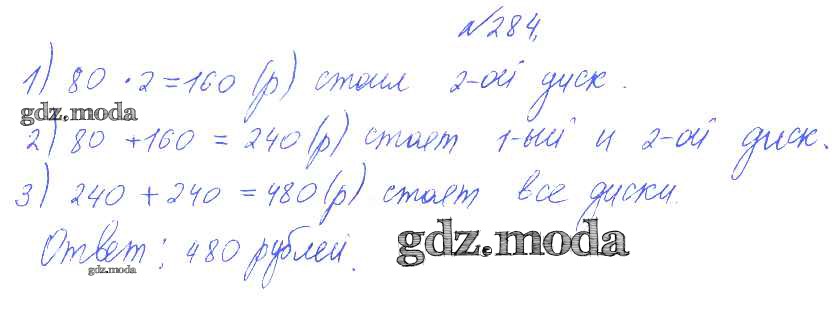 №284.
1) 80 · 2 = 160 (р) стоил 2-ой диск.
gdz.moda
2) 80 + 160 = 240 (р) стоят 1-ый и 2-ой диск.
3) 240 + 240 = 480 (р) стоят все диски.
Ответ: 480 рублей.
gdz.moda
gdz.moda